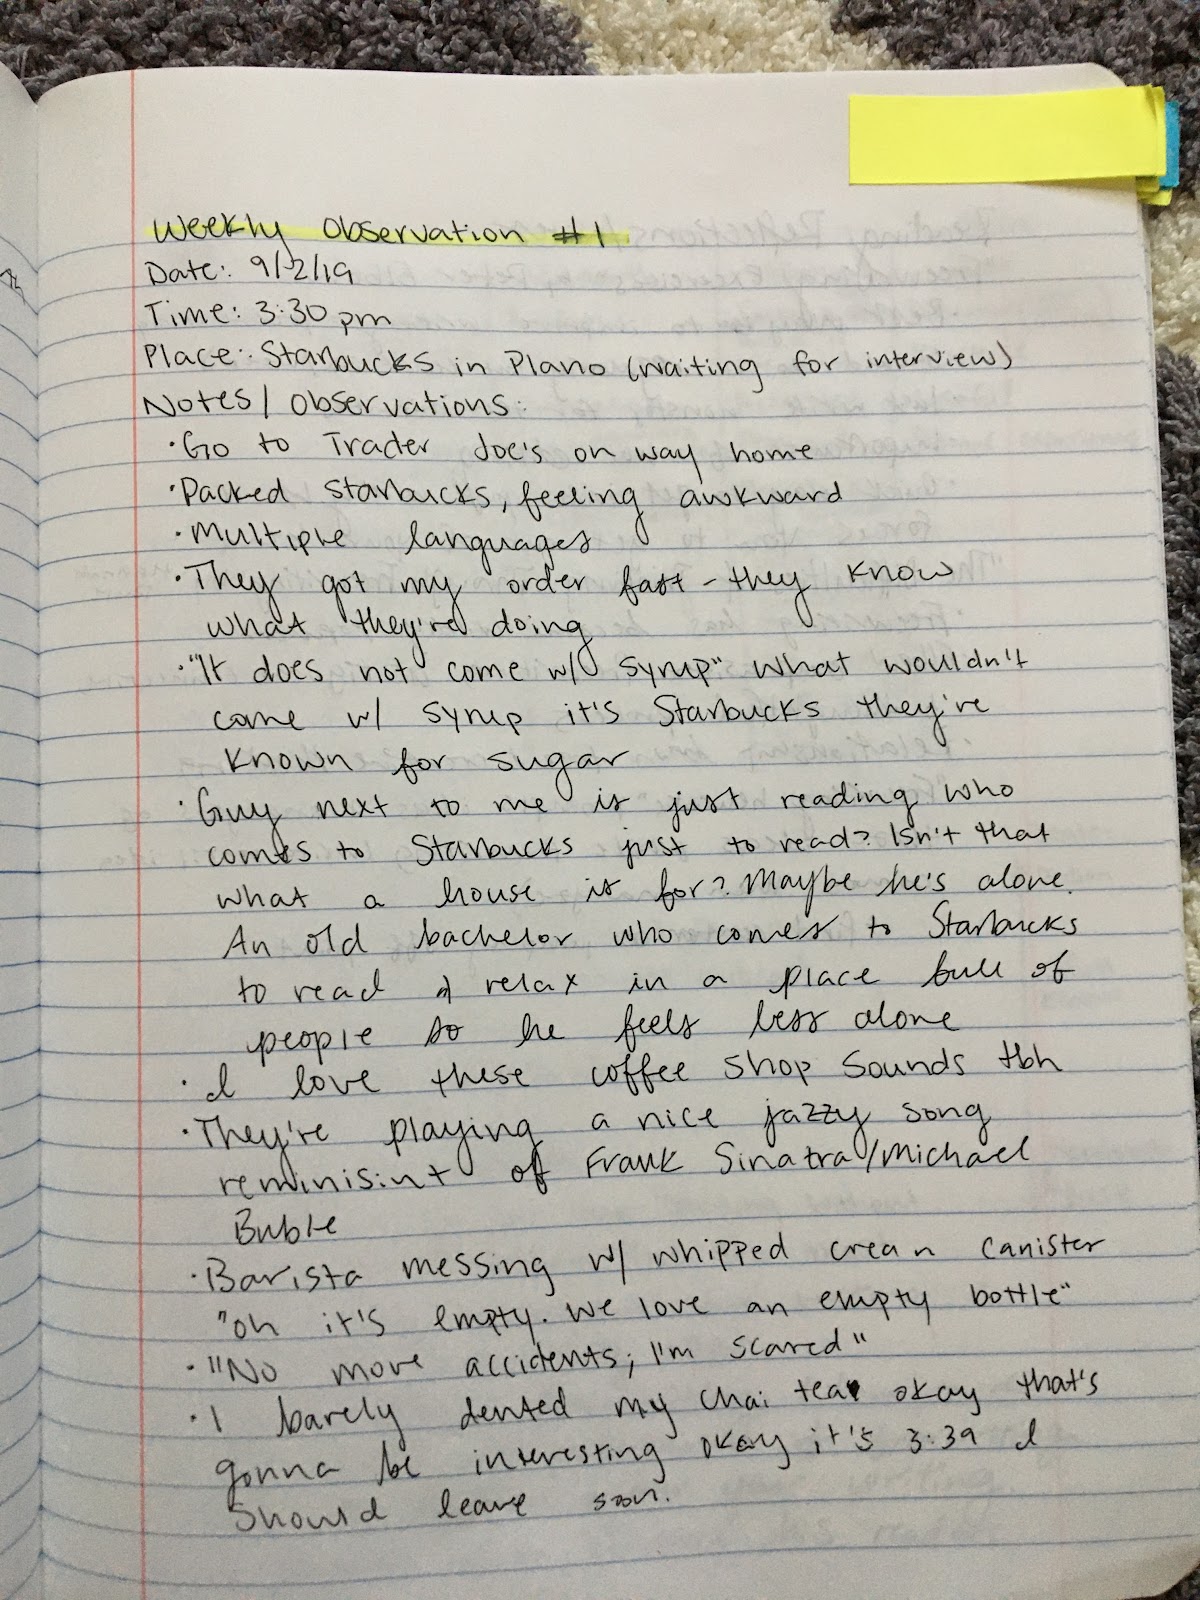 Weekly Observation #1
Date: 9/2/19
Time: 3:30 pm
Place: Starbucks in Plano (waiting for interview)
Notes/Observations:
· Go to Trader Joe's on way home
· Packed Starbucks, feeling awkward
· Multiple languages
· They got my order fast - they know
what they're doing
· "It does not come w/ syrup" what wouldn't
come w/ syrup it's Starbucks they're
known for sugar
· Guy next to me is just reading who
comes to Starbucks just to read? Isn't that
what a house is for? Maybe he's alone.
An old bachelor who comes to Starbucks
to read & relax in a place full of
people so he feels less alone
· I love these coffee shop sounds tbh
· They're playing a nice jazzy song
reminisint of Frank Sinatra/Michael
Buble
· Barista messing w/ whipped cream canister
"oh it's empty. We love an empty bottle"
· "No more accidents; I'm scared"
· I barely dented my chai tea okay that's
gonna be interesting okay it's 3:39 I
should leave soon.